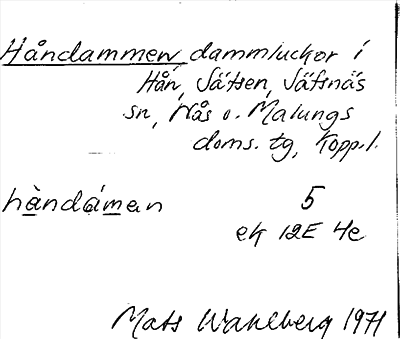 Håndammen dammluckor i
Hån, Sätsen, Säfsnäs
sn, Nås o. Malungs
doms. tg, Kopp. l.
hàndámen 5
ek 12E 4e
Mats Wahlberg 1971